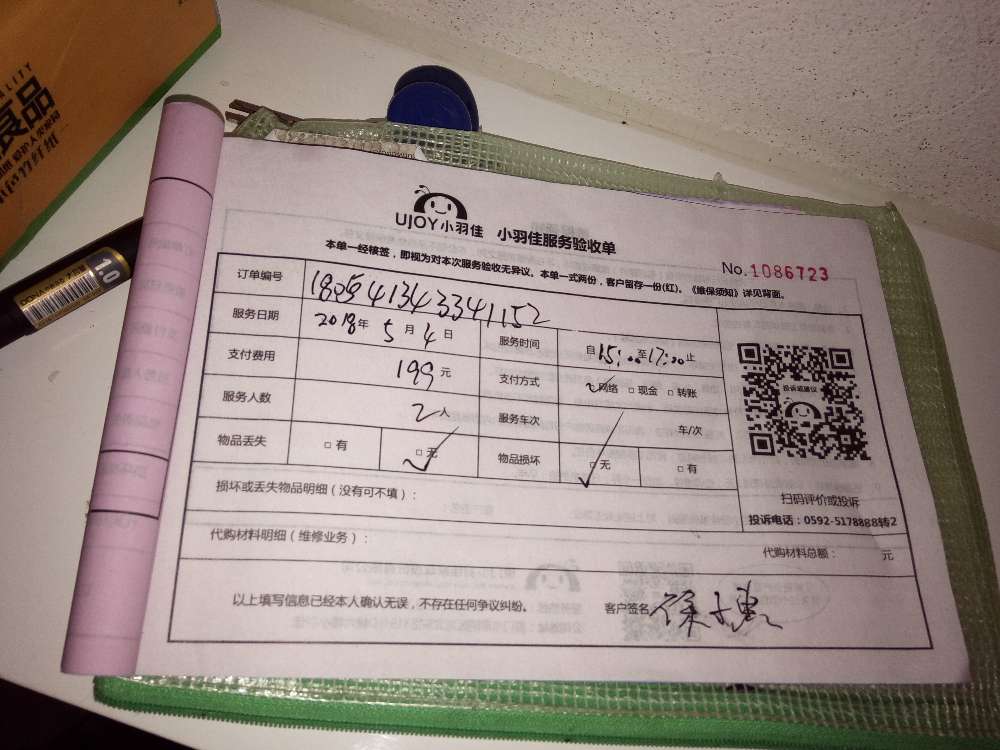 食品
1.0
UJOY小羽佳 小羽佳服务验收单
No.1086723
本单一经核签，即视为对本次服务验收无异议。本单一式两份，客户留存一份(红)。《维保须知》详见背面。
订单编号 1805413433411152
服务日期 2018年 5月 4日 服务时间 自15:00至17:00止
支付费用 199元 支付方式 ☑网络 □现金 □转账
服务人数 2人 服务车次 车/次
物品丢失 □有 ☑无 物品损坏 ☑无 □有
投诉或建议
扫码评价或投诉
投诉电话：0592-5178888转2
损坏或丢失物品明细（没有可不填）：
代购材料明细（维修业务）： 代购材料总额： 元
以上填写信息已经本人确认无误，不存在任何争议纠纷。 客户签名